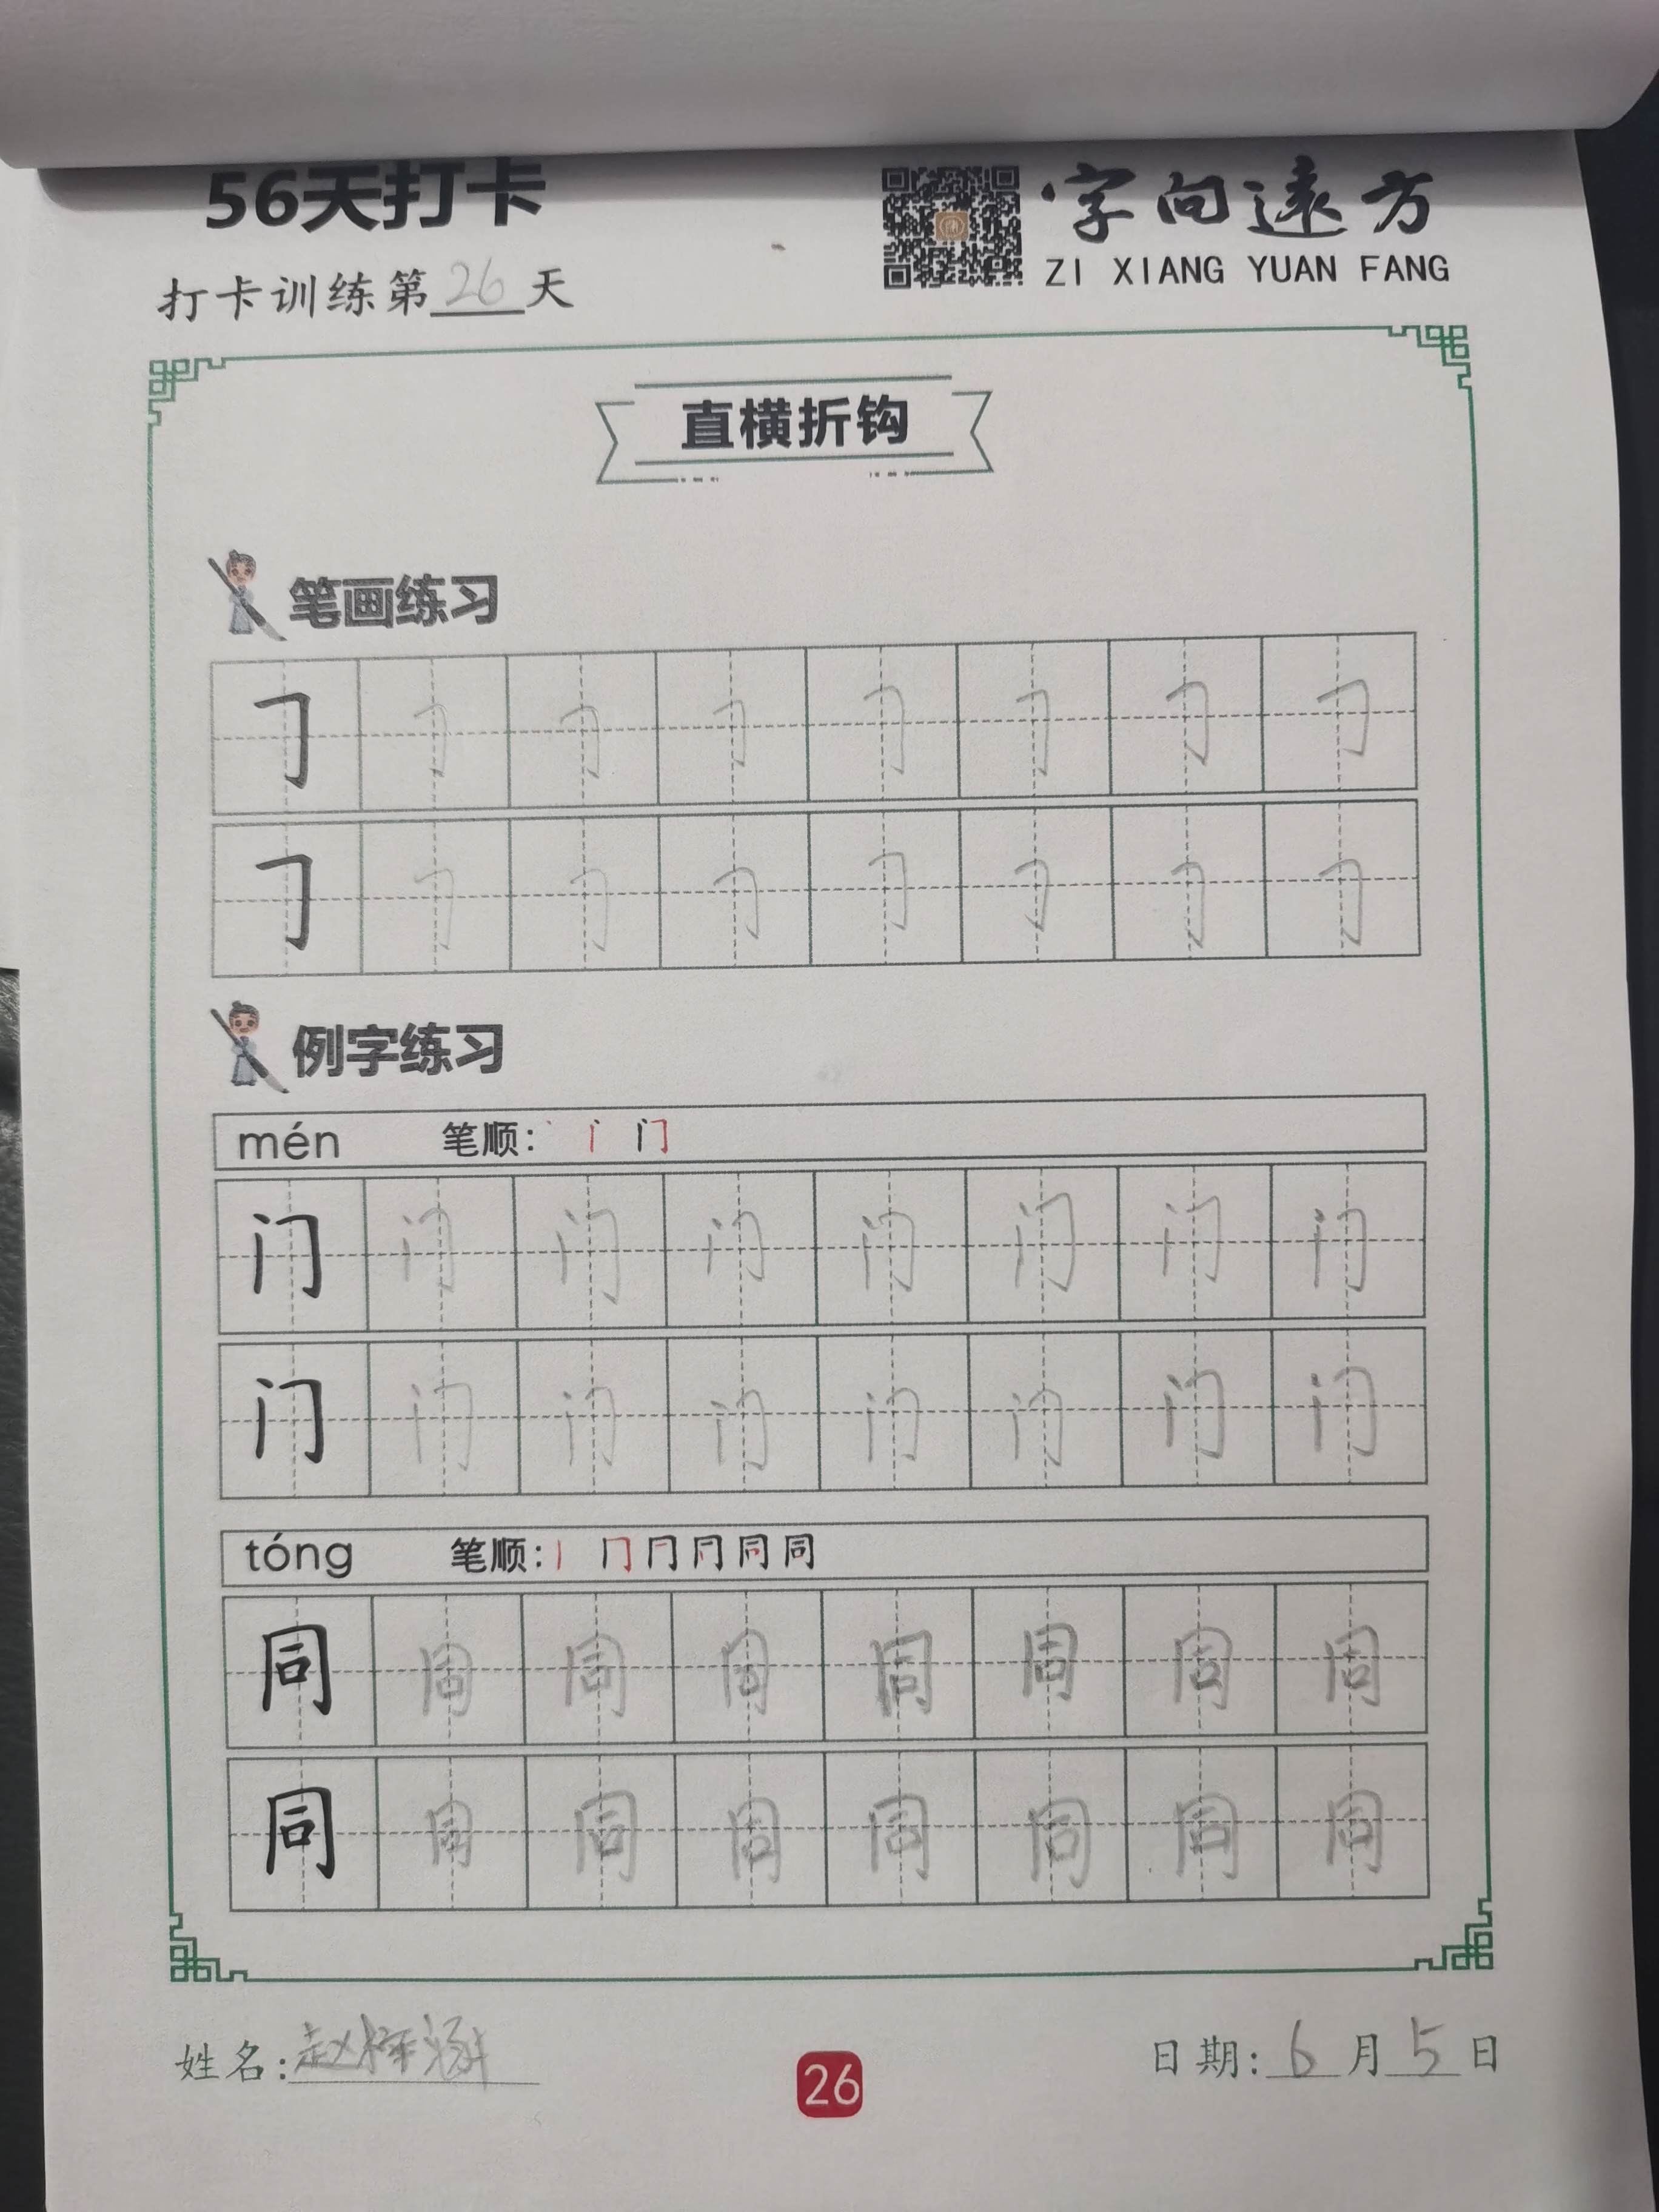 56天打卡
字向远方
ZI XIANG YUAN FANG
打卡训练第26天
直横折钩
笔画练习
𠃌 𠃌 𠃌 𠃌 𠃌 𠃌 𠃌 𠃌
𠃌 𠃌 𠃌 𠃌 𠃌 𠃌 𠃌 𠃌
例字练习
mén 笔顺: 丶 门
门 门 门 门 门 门 门 门
门 门 门 门 门 门 门 门
tóng 笔顺: 丨 冂 同
同 同 同 同 同 同 同 同
同 同 同 同 同 同 同 同
姓名: 赵梓涵
26
日期: 6月5日